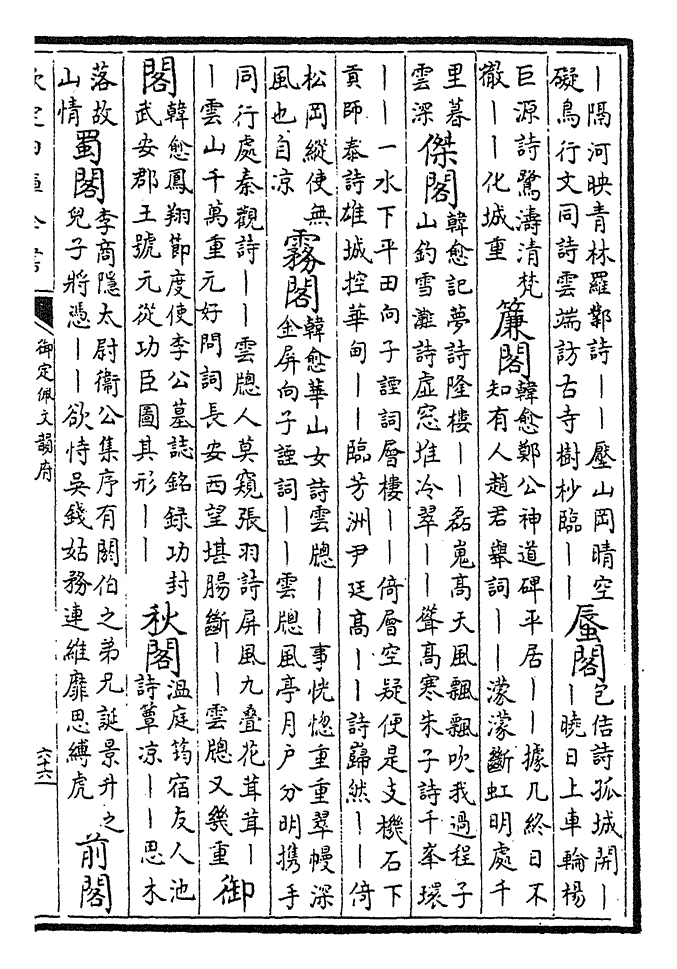 ｜隔河映青林羅鄴詩｜｜壓山岡晴空
礙鳥行文同詩雲端訪古寺樹杪臨｜｜
蜃閣
包佶詩孤城開｜
｜曉日上車輪楊
巨源詩鷺濤清梵
徹｜｜化城重
簾閣
韓愈鄭公神道碑平居｜｜據几終日不
知有人趙君舉詞｜｜濛濛斷虹明處千
里暮
雲深
傑閣
韓愈記夢詩隆樓｜｜磊嵬高天風飄飄吹我過程子
山釣雪灘詩虛窓堆冷翠｜｜聳高寒朱子詩千峯環
｜｜一水下平田向子諲詞層樓｜｜倚層空疑便是支機石下
貢師泰詩雄城控華甸｜｜臨芳洲尹廷高｜｜詩巋然｜｜倚
松岡縱使無
風也自凉
霧閣
韓愈華山女詩雲牕｜｜事恍惚重重翠幔深
金屏向子諲詞｜｜雲牕風亭月戶分明携手
同行處秦觀詩｜｜雲牕人莫窺張羽詩屏風九叠花茸茸｜
｜雲山千萬重元好問詞長安西望堪腸斷｜｜雲牕又幾重
御
閣
韓愈鳳翔節度使李公墓誌銘錄功封
武安郡王號元從功臣圖其形｜｜
秋閣
温庭筠宿友人池
詩簟凉｜｜思木
落故
山情
蜀閣
李商隱太尉衞公集序有閼伯之弟兄誕景升之
兒子將憑｜｜欲恃吳錢姑務連維靡思縛虎
前閣
御定佩文韻府
六十六